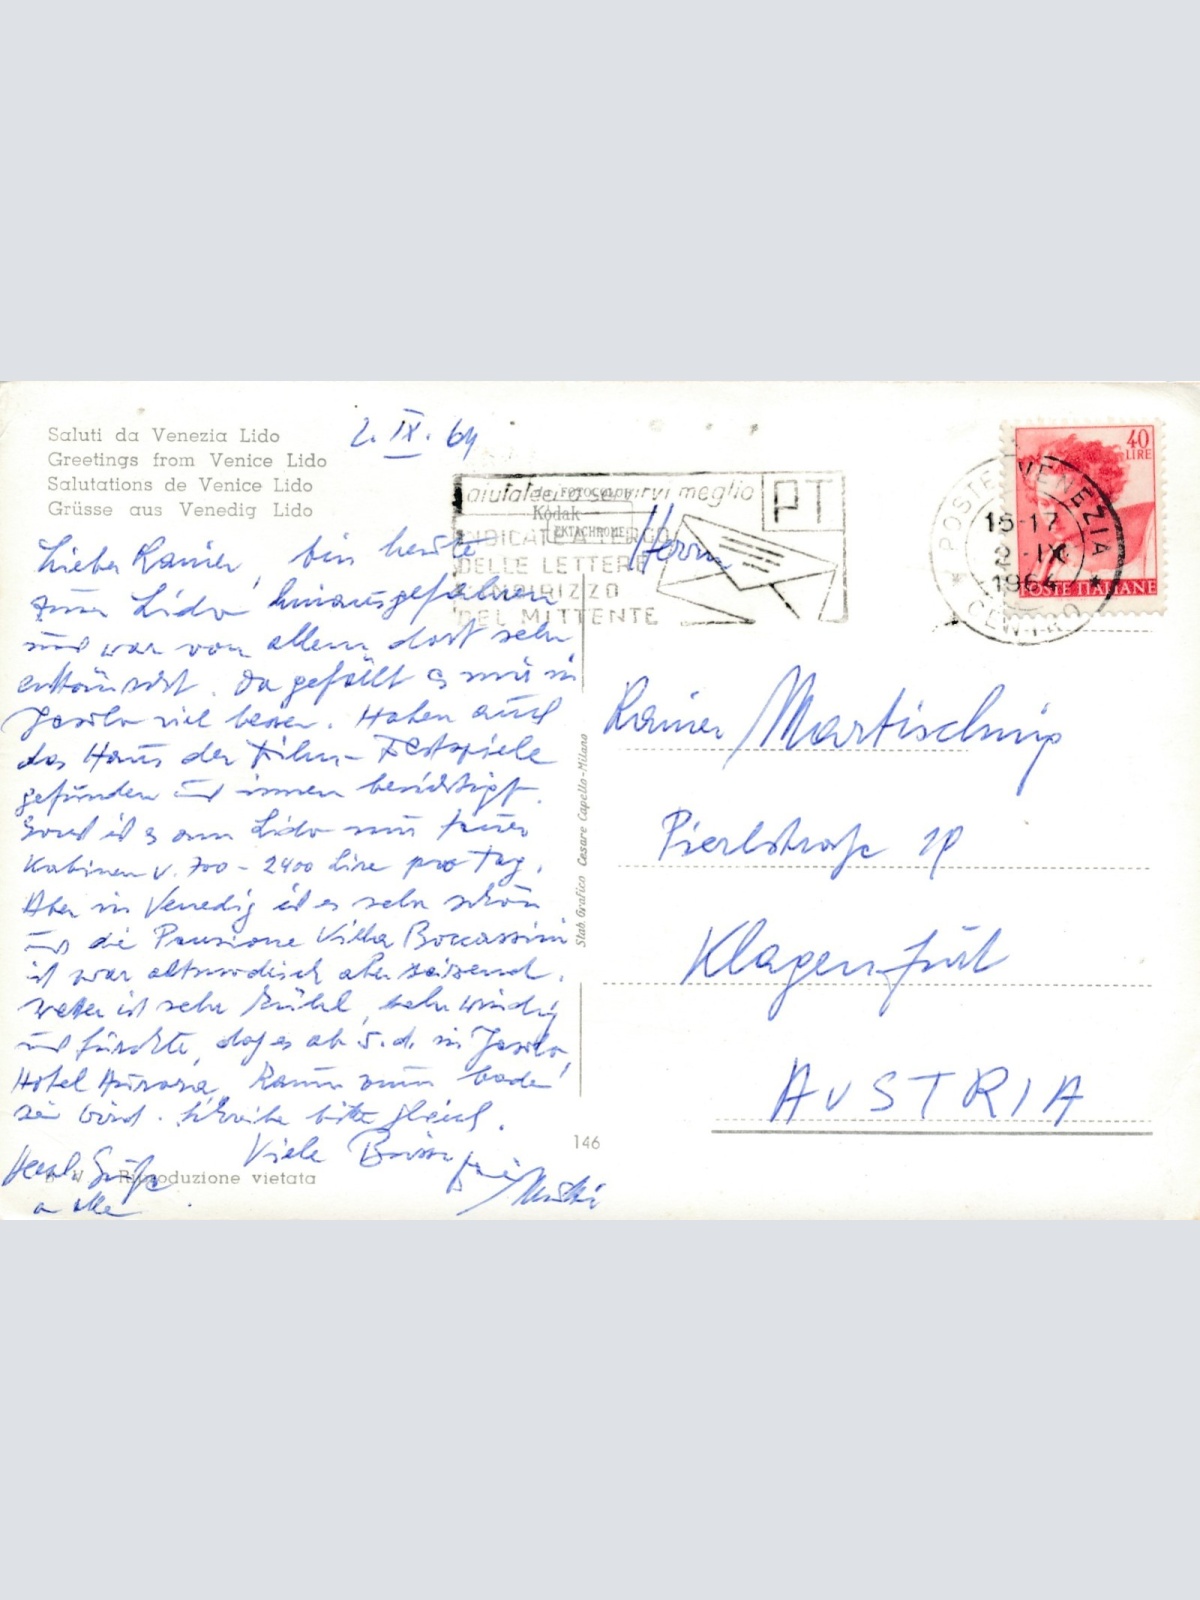 Saluti da Venezia Lido
Greetings from Venice Lido
Salutations de Venice Lido
Grüsse aus Venedig Lido
2. IX. 64
Lieber Rainer, bin heute
zum Lido hinausgefahren
und war von allem dort sehr
enttäuscht. Da gefällt es mir in
Jesolo viel besser. Haben auch
das Haus der Film-Festspiele
gefunden und innen besichtigt.
Sonst ist es am Lido nur teuer
Kabinen v. 700 - 2400 Lire pro Tag.
Aber in Venedig ist es sehr schön
und die Pensione Villa Boccassini
ist zwar altmodisch aber reizend.
Wetter ist sehr kühl, sehr windig
und fürchte, daß es ab 5. d. in Jesolo,
Hotel Aurora, kaum zum baden
sein wird. Schreibe bitte gleich.
Viele
Herzl. Grüße
Riproduzione vietata
146
Stab. Grafico Cesare Capello-Milano
aiutateci a servirvi meglio
PT
INDICATE A TERGO
DELLE LETTERE
L'INDIRIZZO
DEL MITTENTE
da FOTOCOLOR
Kodak
EKTACHROME
POSTE VENEZIA
15-17
2-IX
1964
CENTRO
40
LIRE
POSTE ITALIANE
Herrn
Rainer Martischnig
Pierlstraße 19
Klagenfurt
AUSTRIA